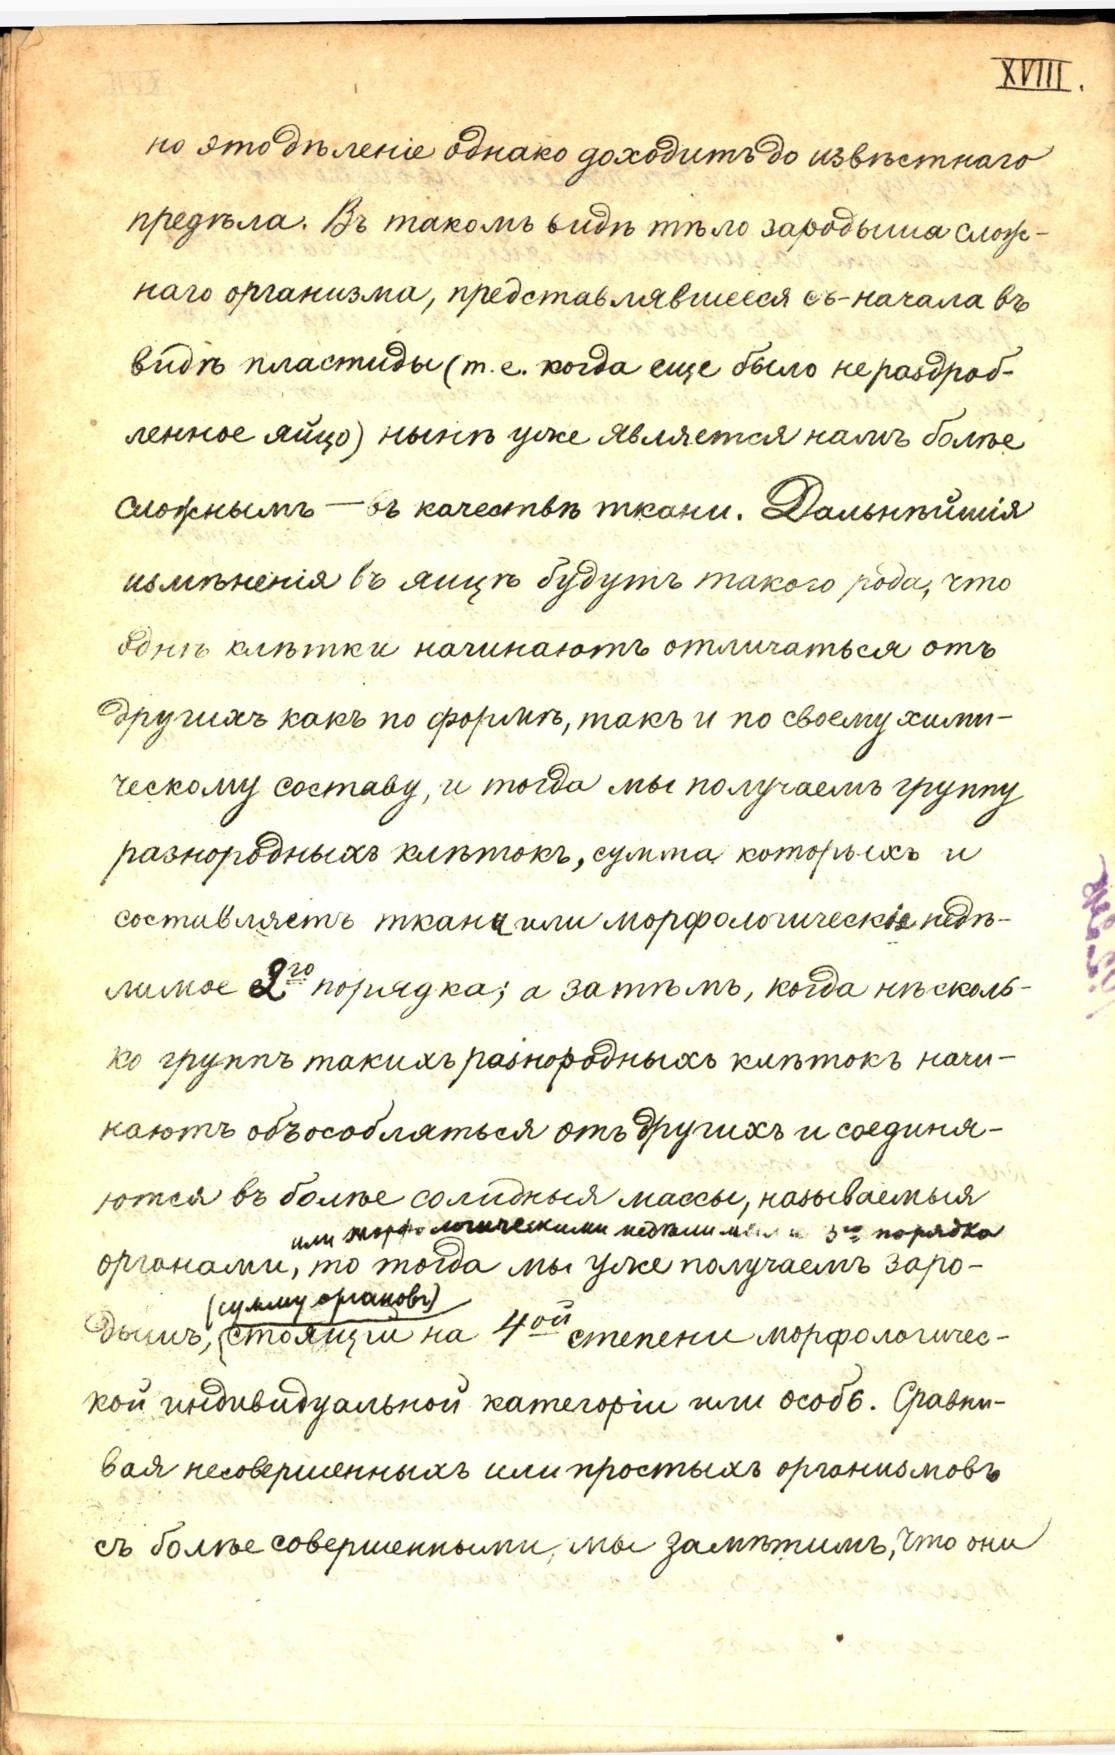 XVIII.
но это дѣленіе однако доходитъ до извѣстнаго
предѣла. Въ такомъ видѣ тѣло зародыша слож-
наго организма, представлявшееся съ-начала въ
видѣ пластиды (т. е. когда еще было не раздроб-
ленное яйцо) нынѣ уже является намъ болѣе
сложнымъ — въ качествѣ ткани. Дальнѣйшія
измѣненія въ яицѣ будутъ такого рода, что
однѣ клѣтки начинаютъ отличаться отъ
другихъ какъ по формѣ, такъ и по своему хими-
ческому составу, и тогда мы получаемъ группу
разнородныхъ клѣтокъ, сумма которыхъ и
составляетъ ткани или морфологическіе недѣ-
лимое 2го порядка; а затѣмъ, когда нѣсколь-
ко группъ такихъ разнородныхъ клѣтокъ начи-
наютъ объособляться отъ другихъ и соединя-
ются въ болѣе солидныя массы, называемыя
или морфологическими недѣлимыми 3го порядка
органами, то тогда мы уже получаемъ заро-
(сумму органовъ)
дышъ, стоящій на 4ой степени морфологичес-
кой индивидуальной категоріи или особь. Сравни-
вая несовершенныхъ или простыхъ организмовъ
съ болѣе совершенными, мы замѣтимъ, что они